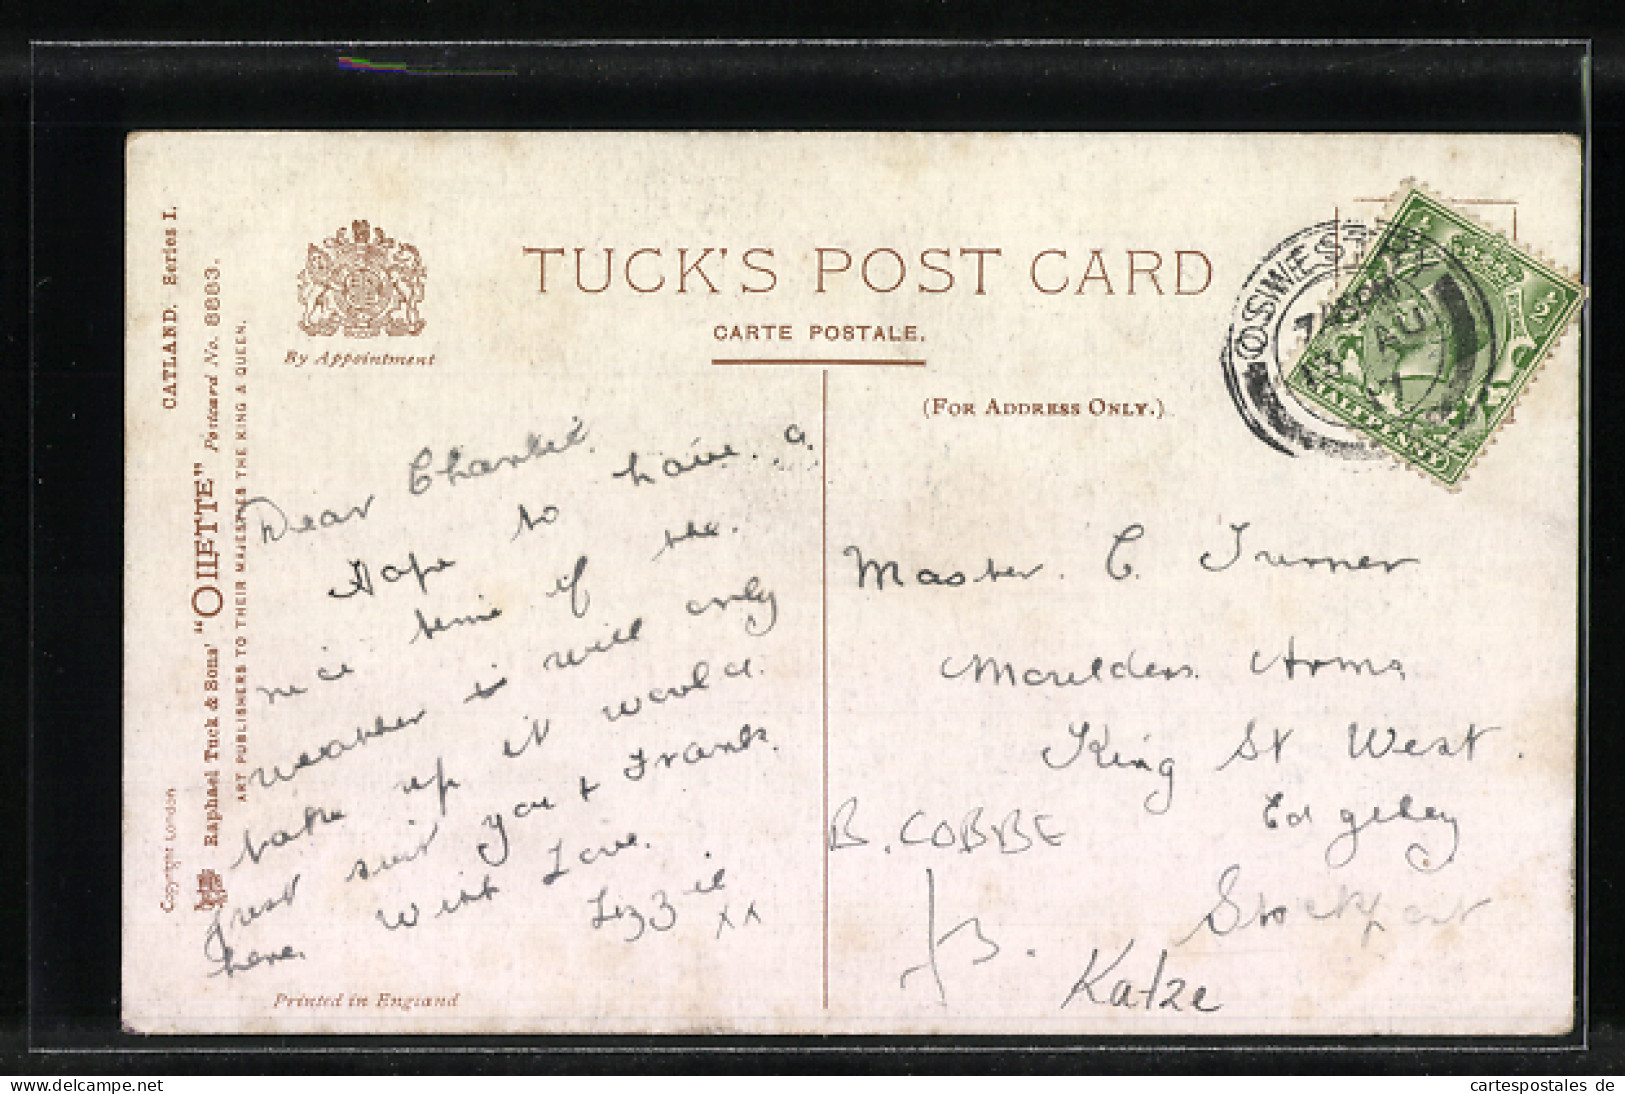 CATLAND. Series I.
Copyright London
Raphael Tuck & Sons' "OILETTE" Postcard No. 8863.
ART PUBLISHERS TO THEIR MAJESTIES THE KING & QUEEN.
By Appointment
TUCK'S POST CARD
CARTE POSTALE.
(FOR ADDRESS ONLY.)
OSWESTRY
13 AU
HALFPENNY
Dear Charlie.
Hope to have a
nice time if the.
weather is will only
take up it would.
just suit you & Frank.
here. With Love.
Lizzie
x x
Master. C. Turner
Moulders Arms
King St West.
Edgeley
Stockport
B. COBBE
Katze
Printed in England
hanna-antique-shop
cartespostales de